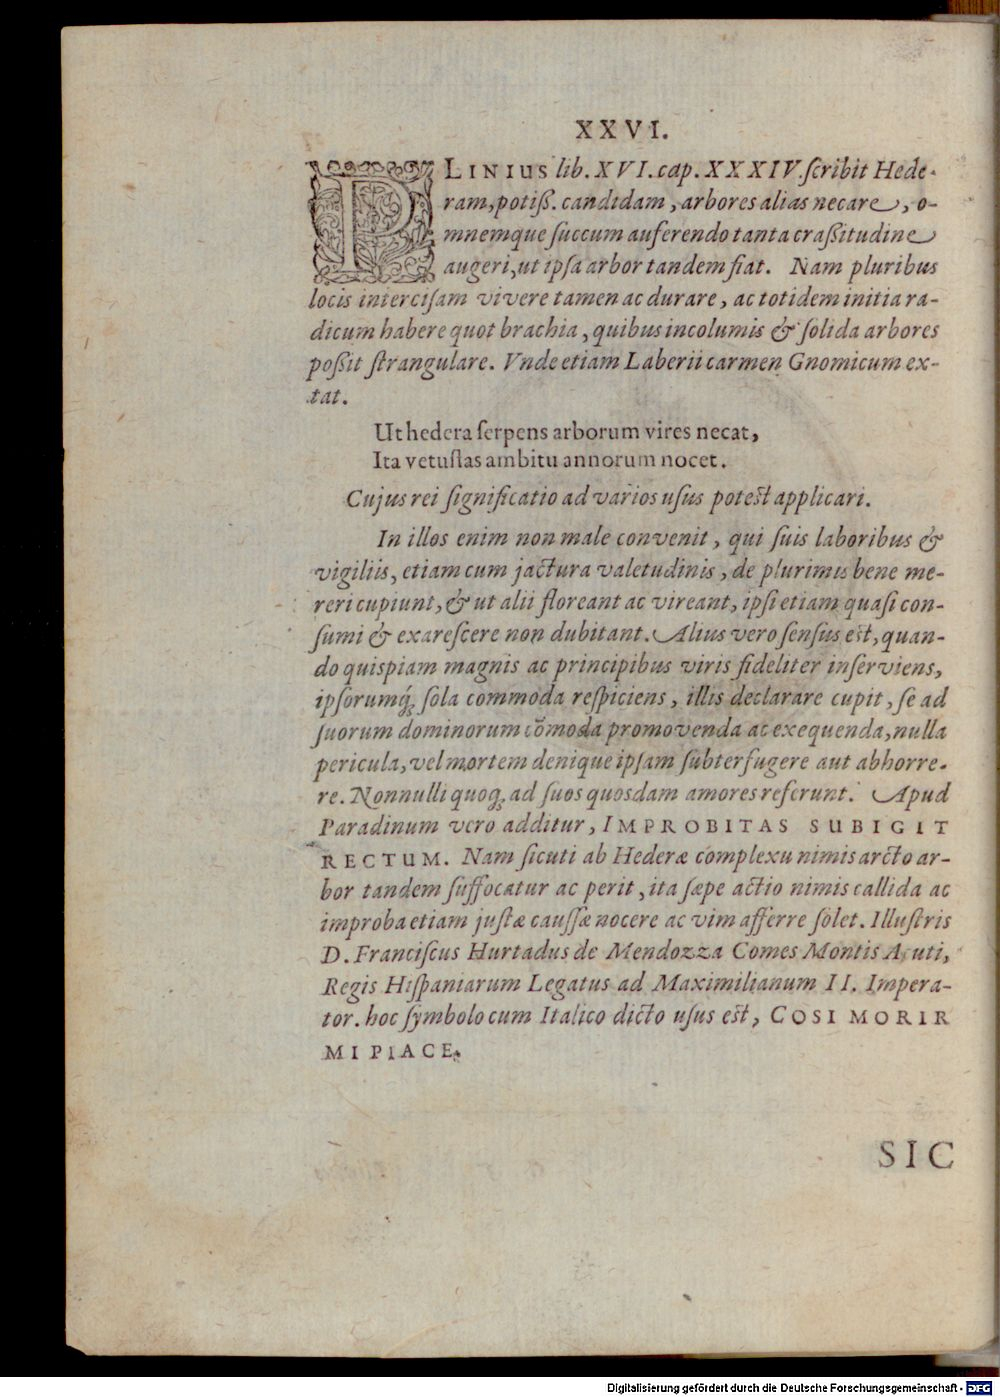 XXVI.
PLINIUS lib. XVI. cap. XXXIV. scribit Hede-
ram, potiß. candidam, arbores alias necare, o-
mnemque succum auferendo tanta craßitudine
augeri, ut ipsa arbor tandem fiat. Nam pluribus
locis intercisam vivere tamen ac durare, ac totidem initia ra-
dicum habere quot brachia, quibus incolumis & solida arbores
poßit strangulare. Vnde etiam Laberii carmen Gnomicum ex-
tat.
Ut hedera serpens arborum vires necat,
Ita vetustas ambitu annorum nocet.
Cujus rei significatio ad varios usus potest applicari.
In illos enim non male convenit, qui suis laboribus &
vigiliis, etiam cum jactura valetudinis, de plurimis bene me-
reri cupiunt, & ut alii floreant ac vireant, ipsi etiam quasi con-
sumi & exarescere non dubitant. Alius vero sensus est, quan-
do quispiam magnis ac principibus viris fideliter inserviens,
ipsorumq́; sola commoda respiciens, illis declarare cupit, se ad
suorum dominorum cōmoda promovenda ac exequenda, nulla
pericula, vel mortem denique ipsam subterfugere aut abhorre-
re. Nonnulli quoq; ad suos quosdam amores referunt. Apud
Paradinum vero additur, IMPROBITAS SUBIGIT
RECTUM. Nam sicuti ab Hederæ complexu nimis arcto ar-
bor tandem suffocatur ac perit, ita sæpe actio nimis callida ac
improba etiam justæ caussæ nocere ac vim afferre solet. Illustris
D. Franciscus Hurtadus de Mendozza Comes Montis Acuti,
Regis Hispaniarum Legatus ad Maximilianum II. Impera-
tor. hoc symbolo cum Italico dicto usus est, COSI MORIR
MI PIACE.
SIC
Digitalisierung gefördert durch die Deutsche Forschungsgemeinschaft - DFG